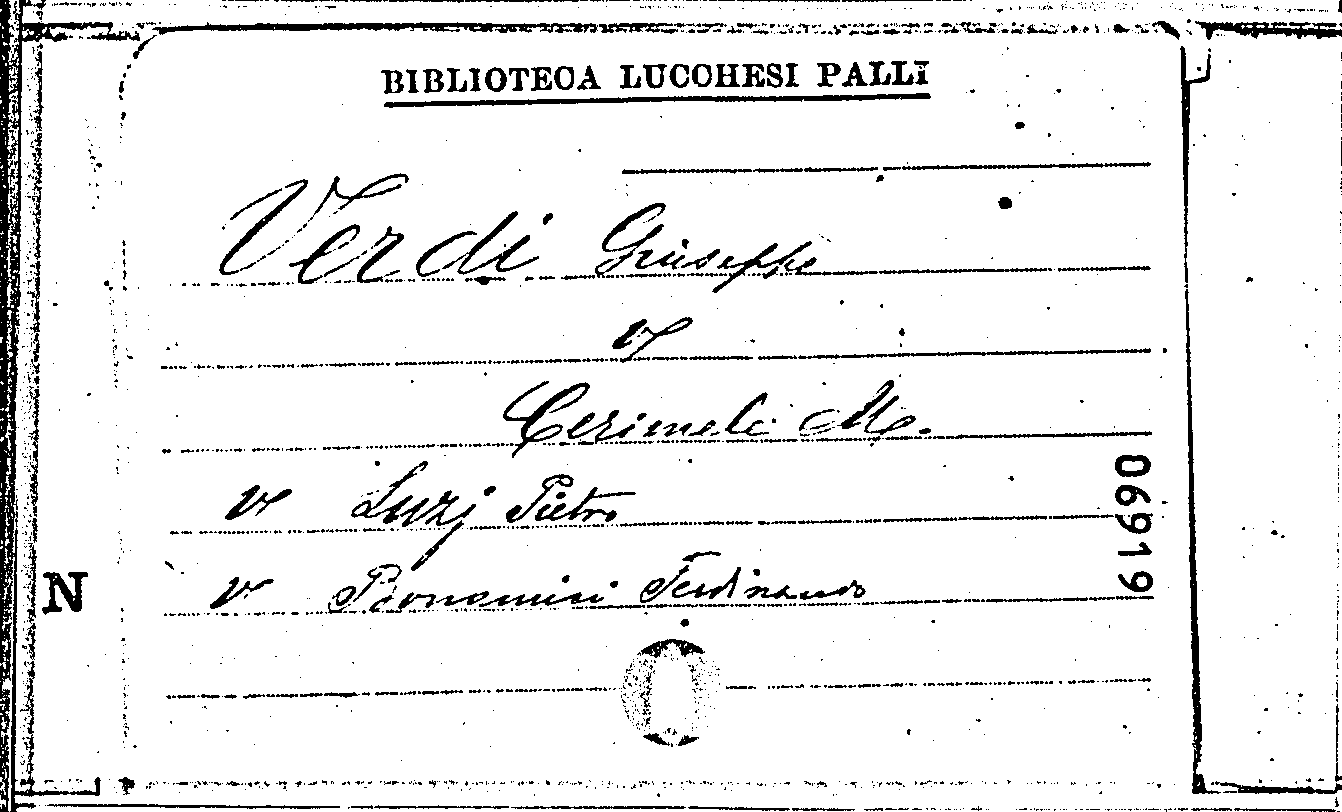 BIBLIOTECA LUCCHESI PALLI
Verdi Giuseppe
V
Cerimele M.
V Luzj Pietro
V Bonamici Ferdinando
06919
N